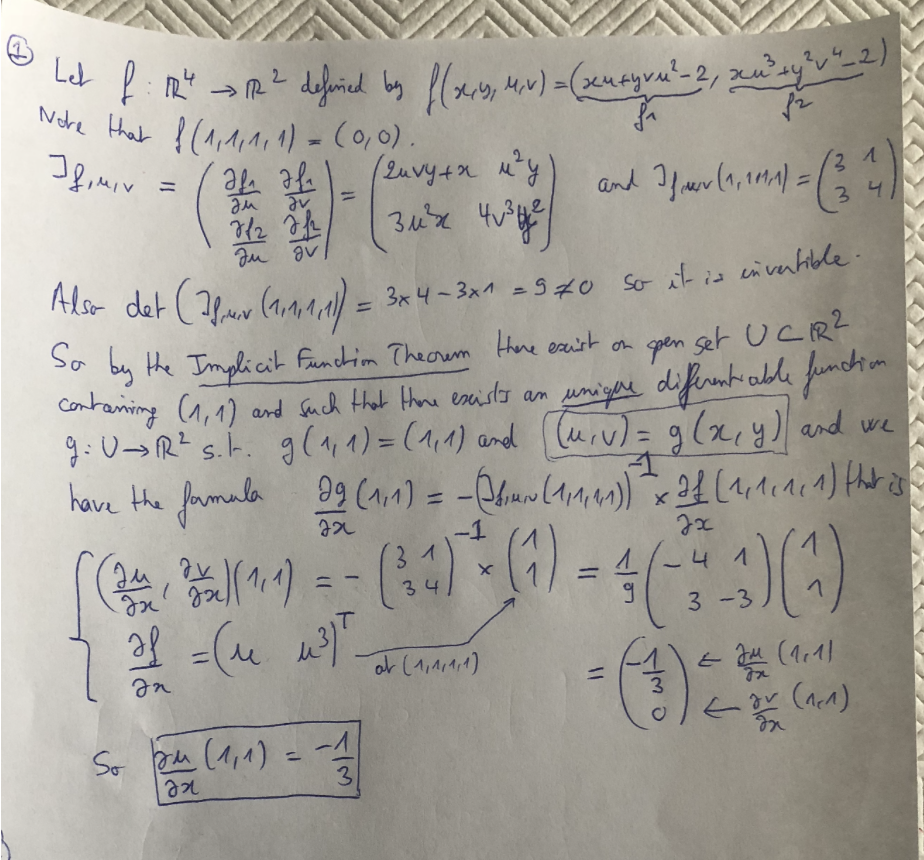 ① Let f : ℝ⁴ → ℝ² defined by f(x,y,u,v) = (xu+yvu²-2, xu³+y²v⁴-2)
f₁ f₂
Note that f(1,1,1,1) = (0,0).
J f,u,v = ( ∂f₁/∂u ∂f₁/∂v ; ∂f₂/∂u ∂f₂/∂v ) = ( 2uvy+x u²y ; 3u²x 4v³y² ) and J f,u,v (1,1,1,1) = ( 3 1 ; 3 4 )
Also det (J f,u,v (1,1,1,1)) = 3×4 - 3×1 = 9 ≠ 0 so it is invertible.
So by the Implicit Function Theorem there exist an open set U ⊂ ℝ²
containing (1,1) and such that there exists an unique differentiable function
g: U → ℝ² s.t. g(1,1) = (1,1) and (u,v) = g(x,y) and we
have the formula ∂g/∂x (1,1) = -(J f,u,v (1,1,1,1))⁻¹ × ∂f/∂x (1,1,1,1) that is
(∂u/∂x, ∂v/∂x)(1,1) = - ( 3 1 ; 3 4 )⁻¹ × ( 1 ; 1 ) = 1/9 ( -4 1 ; 3 -3 ) ( 1 ; 1 )
∂f/∂x = (u u³)ᵀ at (1,1,1,1) = ( -1/3 ; 0 ) ← ∂u/∂x (1,1)
← ∂v/∂x (1,1)
So ∂u/∂x (1,1) = -1/3